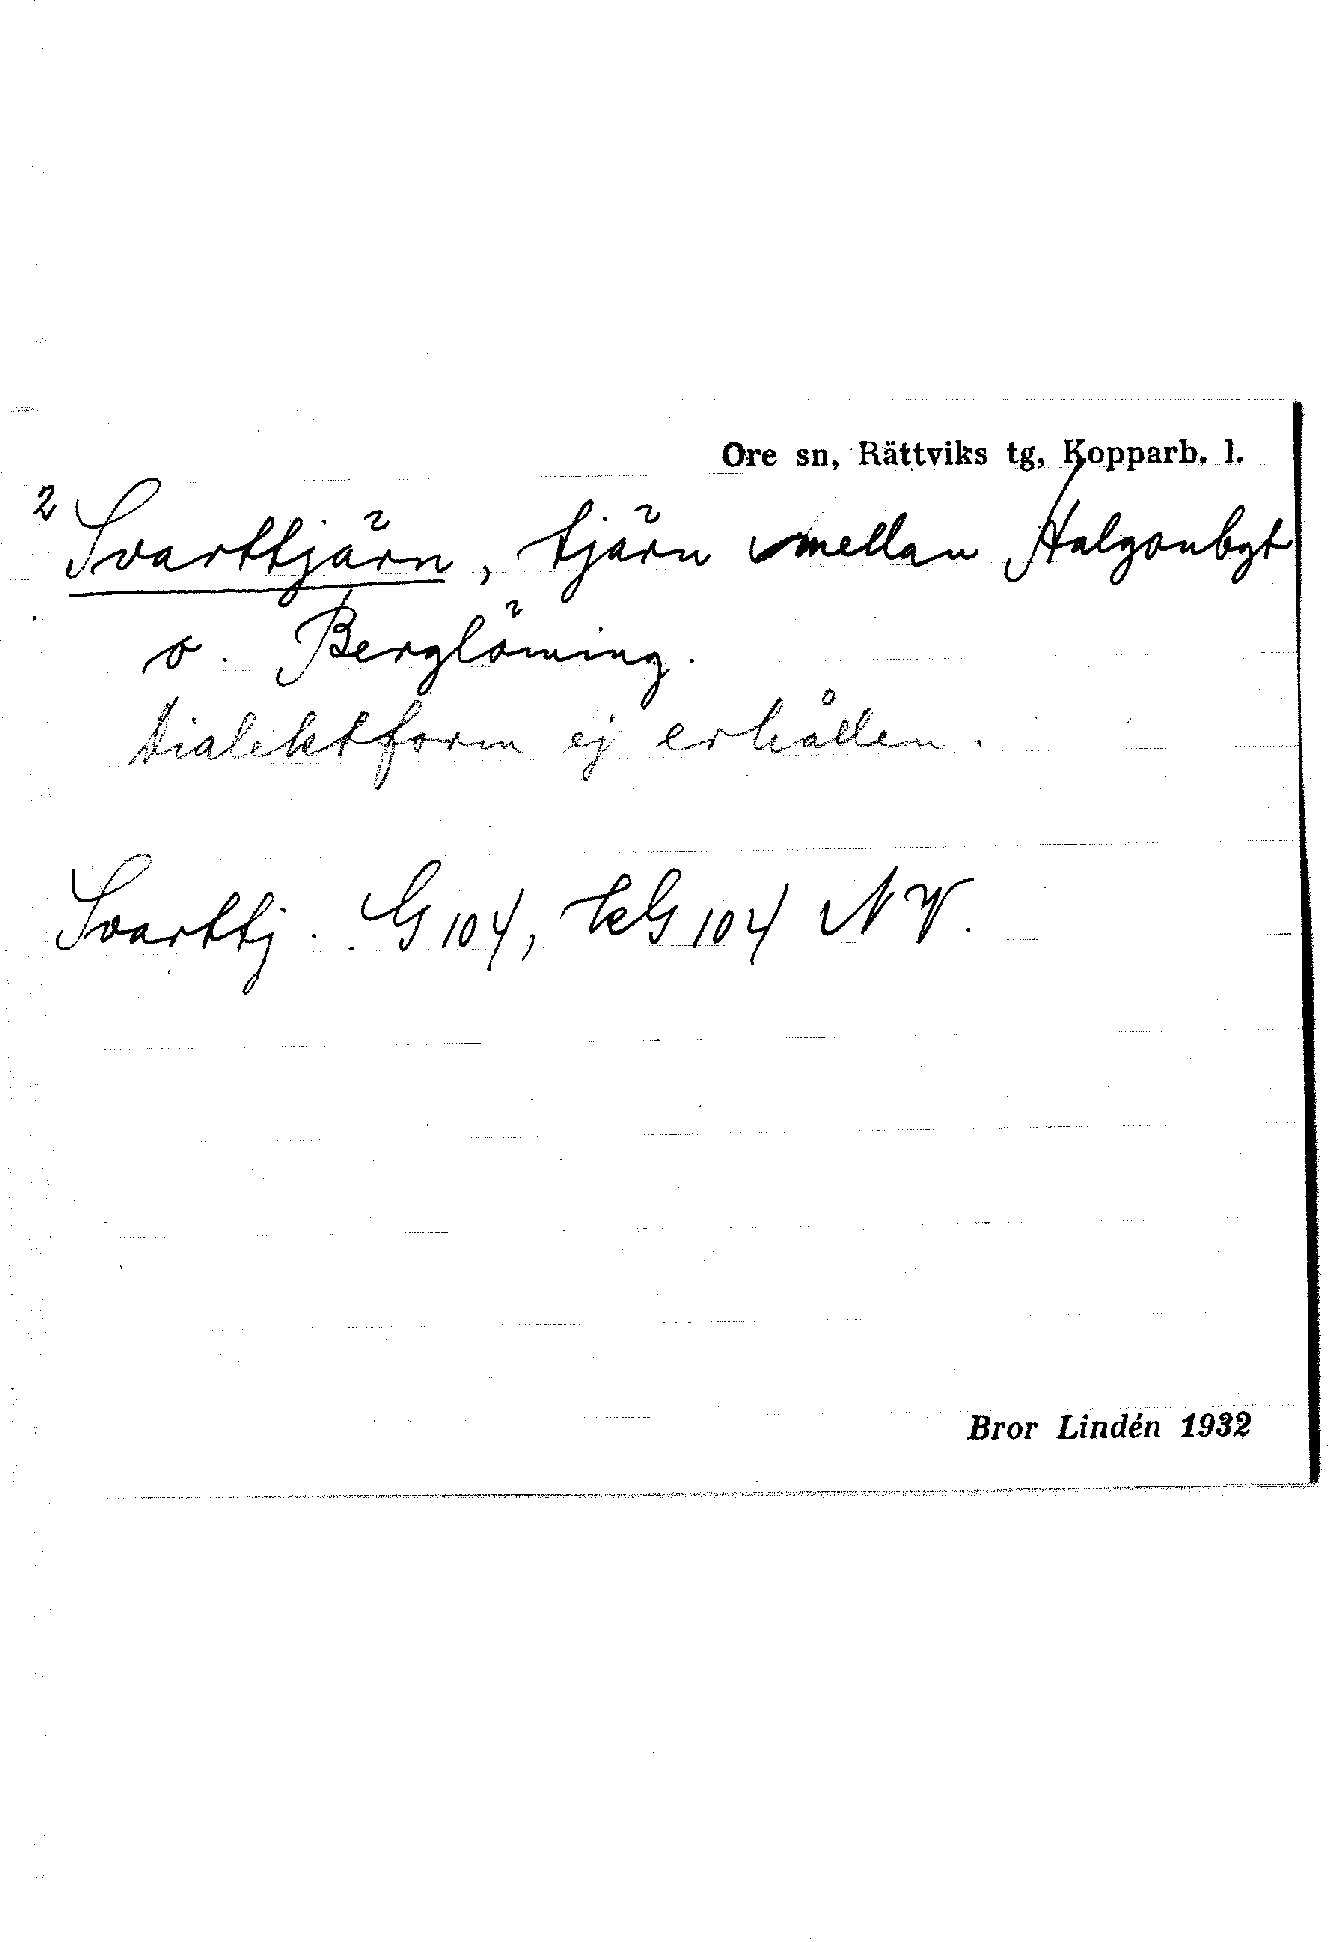 Ore sn, Rättviks tg, Kopparb. l.
2 Svarttjärn, tjärn mellan Halgonbgt
o. Berglöming.
Dialektform ej erhållen.
Svarttj. G 104, kG 104 NV.
Bror Lindén 1932